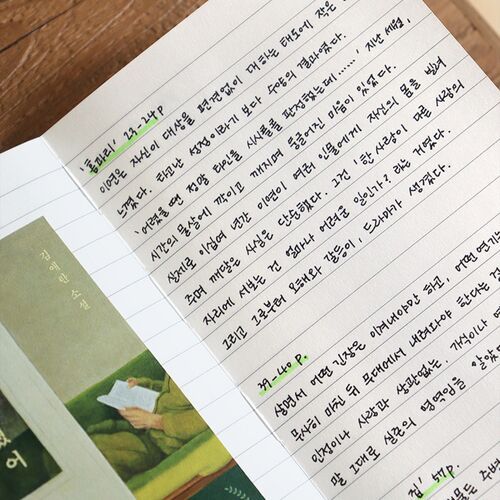 '홈파티' 23-24p
이연은 자신이 대상을 편견없이 대하는 태도에 작은
느꼈다. 타고난 성정이라기 보다 수양의 결과였다.
'어렸을 땐 정말 타인을 시시콜콜 판정했는데……' 지난 세월,
시간의 물살에 깎이고 깨지며 둥글어진 마음이 있었다.
실제로 이십여 년간 이연이 여러 인물에게 자신의 몸을 빌려
주며 깨달은 사실은 단순했다. 그건 '한 사람이 다른 사람의
자리에 서보는 건 얼마나 어려운 일인가?'라는 거였다.
그리고 그로부터 오해와 갈등이, 드라마가 생겼다.
39-40p.
살면서 어떤 긴장은 이겨내야만 하고, 어떤 연기는
무사히 마친 뒤 무대에서 내려와야 한다는 걸
인정이나 사랑과 상관없는. 가식이나 예
말 그대로 실존의 영역임을 알았
집' 57p.
들은 주변
김애란 소설
어